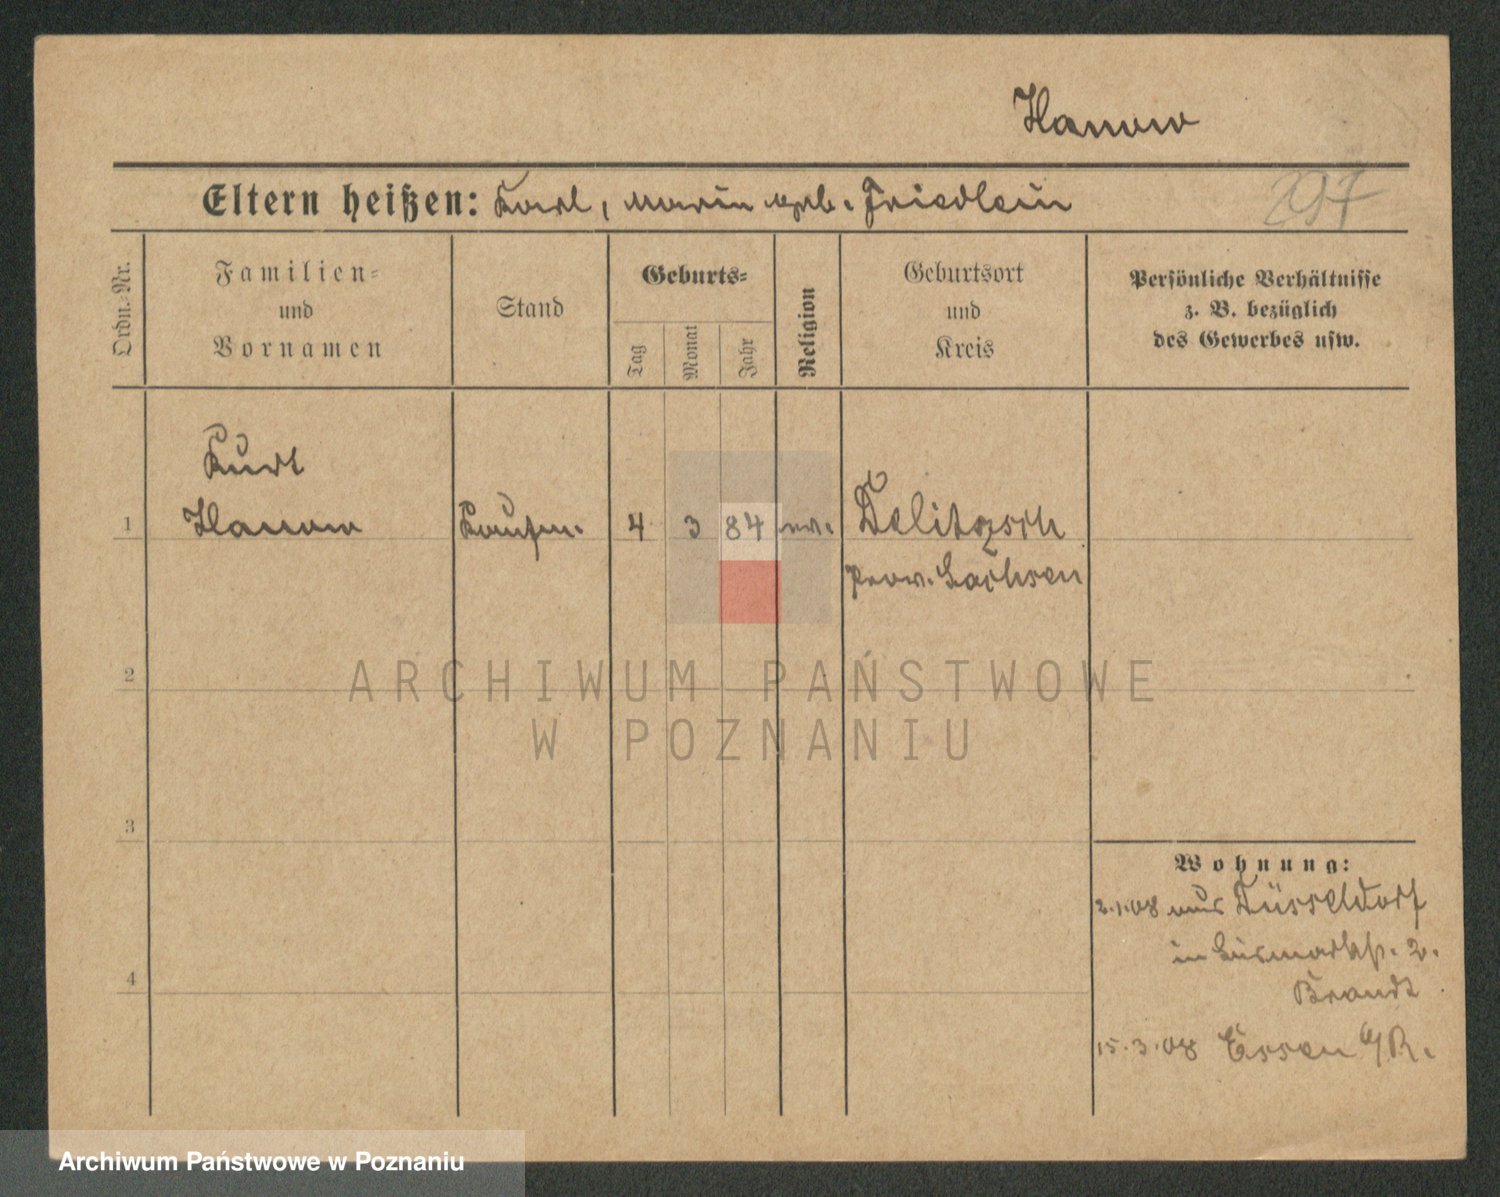 Hanow
Eltern heißen: Karl, Marie geb. Friedlein
297
Ordn.-Nr.
Familien-
und
Vornamen
Stand
Geburts-
Tag
Monat
Jahr
Religion
Geburtsort
und
Kreis
Persönliche Verhältnisse
z. B. bezüglich
des Gewerbes usw.
Kurt
1 Hanow Kaufm. 4 3 84 ev. Delitzsch
Prov. Sachsen
2
3
4
Wohnung:
2.1.08 aus Düsseldorf
in Bismarckstr. 2.
Brandt
15.3.08 Essen a/R.
ARCHIWUM PAŃSTWOWE
W POZNANIU
Archiwum Państwowe w Poznaniu